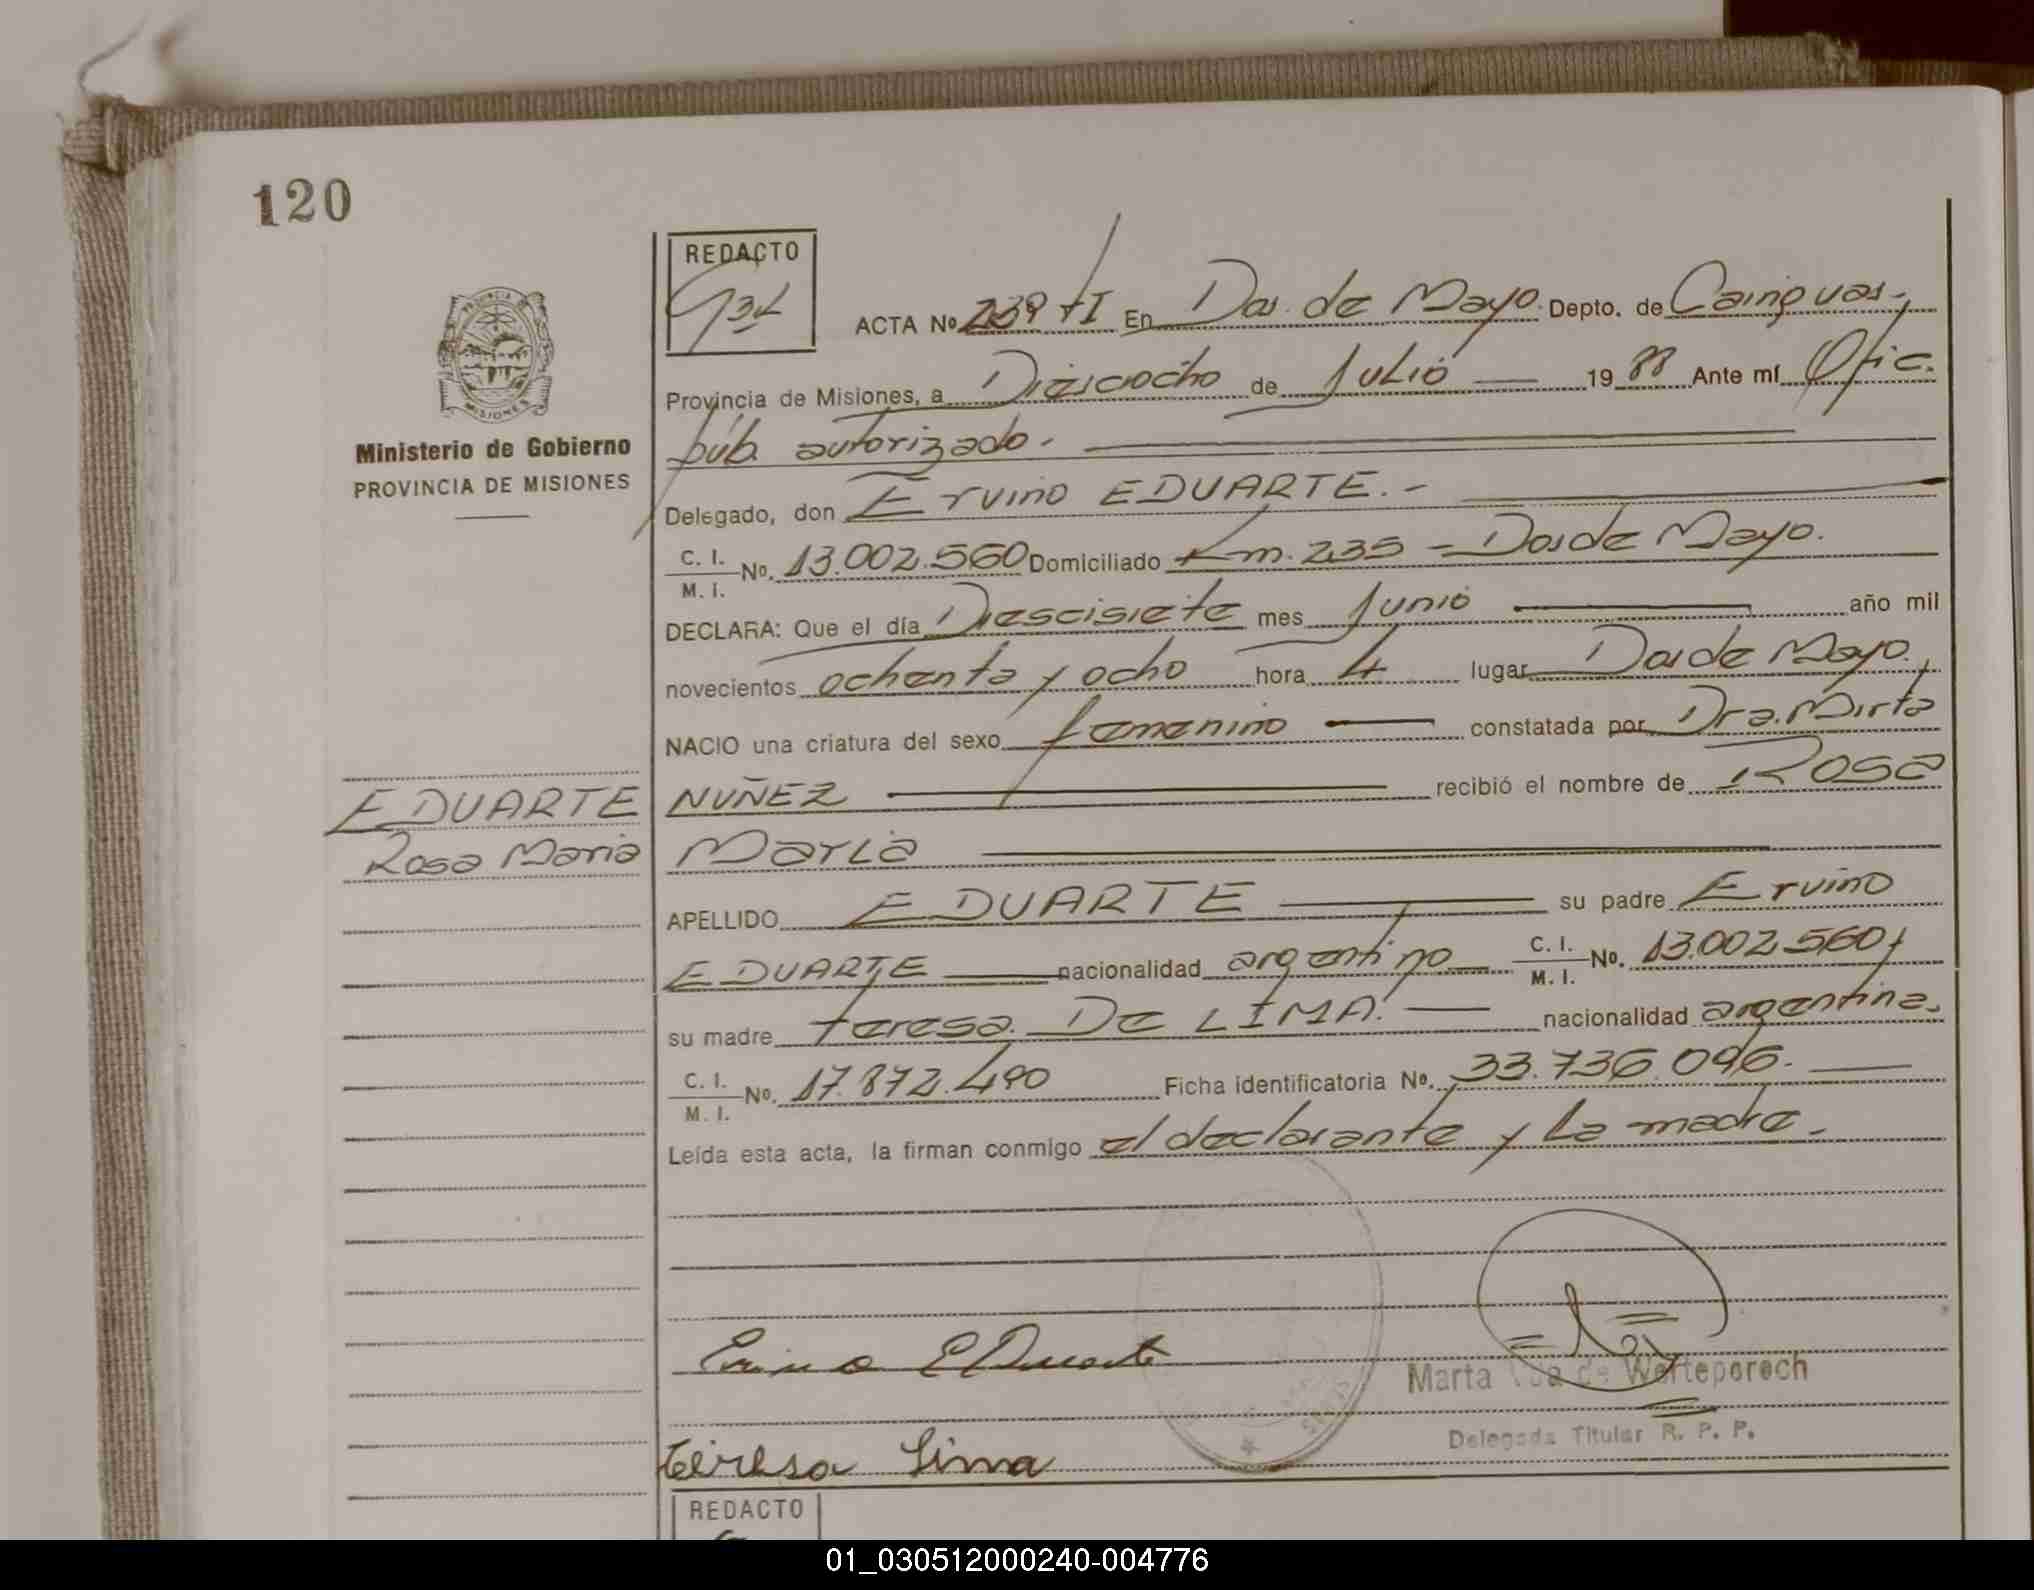 120
REDACTO
ACTA Nº 239 tI En Dos de Mayo. Depto. de Cainguas.
Provincia de Misiones, a Diesciocho de Julio 1988 Ante mí Ofic.
púb. autorizado.
PROVINCIA DE MISIONES
Ministerio de Gobierno
PROVINCIA DE MISIONES
Delegado, don Ervino EDUARTE.-
C. I. M. I. Nº. 13.002.560 Domiciliado Km. 235 - Dos de Mayo.
DECLARA: Que el día Diescisiete mes Junio año mil
novecientos ochenta y ocho hora 4 lugar Dos de Mayo,
NACIO una criatura del sexo femenino constatada por Dra. Mirta
NUÑEZ recibió el nombre de Rosa
María
EDUARTE
Rosa Maria
APELLIDO EDUARTE su padre Ervino
EDUARTE nacionalidad argentino C. I. M. I. Nº. 13.002.560 y
su madre teresa De LIMA. nacionalidad argentina.
C. I. M. I. Nº. 17.872.490 Ficha identificatoria Nº. 33.736.096.
Leída esta acta, la firman conmigo el declarante y la madre.
Ervino EDuarte
Marta Vda de Werteperech
Delegada Titular R. P. P.
teresa Lima
REDACTO
01_030512000240-004776